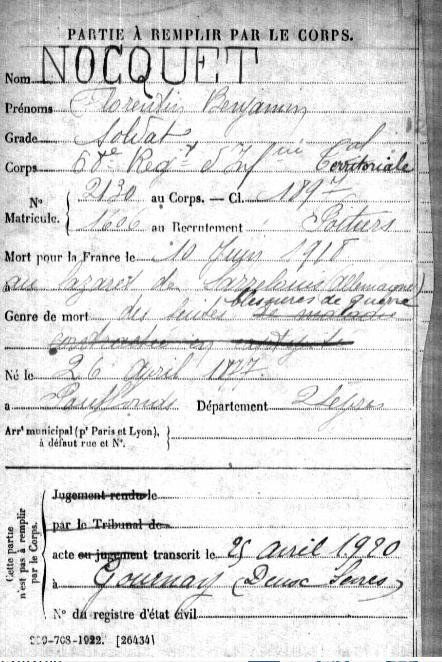 PARTIE À REMPLIR PAR LE CORPS.
Nom NOCQUET
Prénoms Florentin Benjamin
Grade Soldat
Corps 68e Regt d'Infie Territoriale
N° Matricule. { 2130 au Corps. — Cl. 1897
1606 au Recrutement Poitiers
Mort pour la France le 10 Juin 1918
à au lazaret de (Allemagne)
Genre de mort des suites de maladie blessures de guerre
contractée en
Né le 26 Avril 1877
à Département 2 Sèvres
Arrt municipal (pr Paris et Lyon), à défaut rue et N°. {
Cette partie n'est pas à remplir par le Corps.
Jugement rendu le
par le Tribunal de
acte ou jugement transcrit le 25 avril 1920
à Gournay (Deux Sevres)
N° du registre d'état civil
-708-1922. [26434]